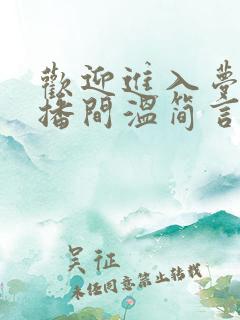 歡迎進入夢
播間溫简言
吴征
未任同意禁止转载